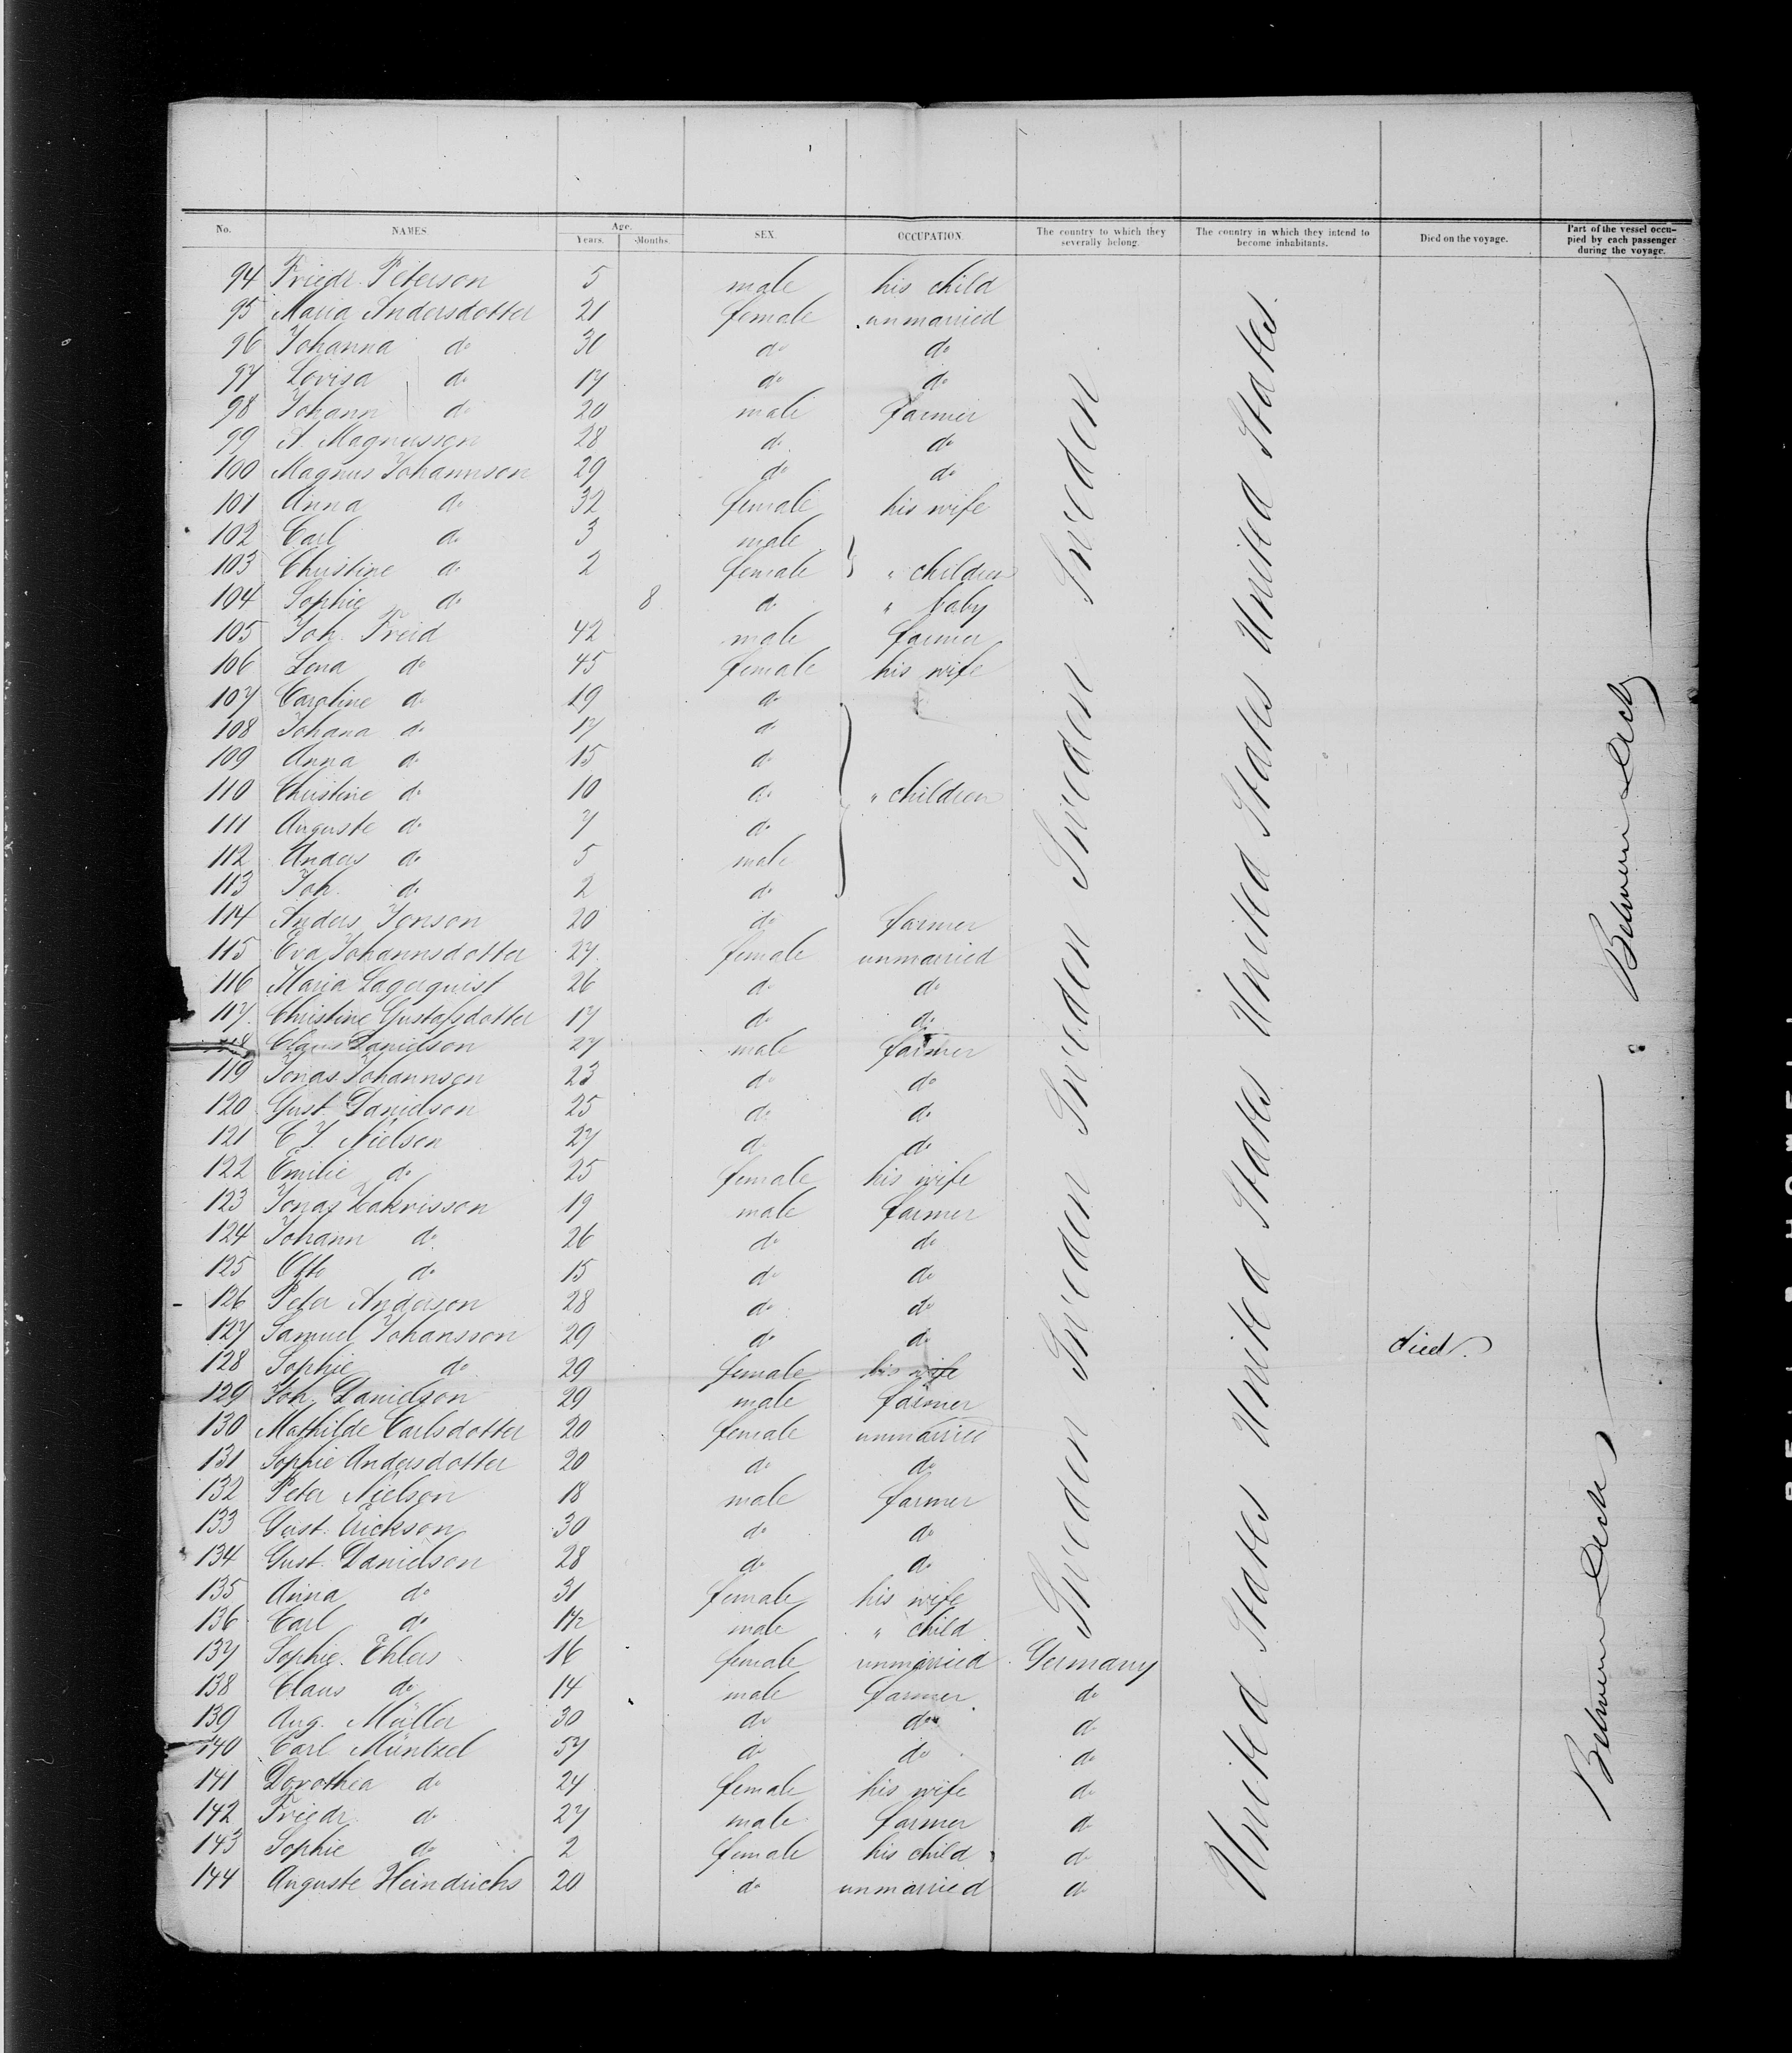 No. NAMES Age. Years. Months. SEX. OCCUPATION. The country to which they severally belong. The country in which they intend to become inhabitants. Died on the voyage. Part of the vessel occupied by each passenger during the voyage.
94 Friedr. Peterson 5 male his child
95 Maria Andersdotter 21 female unmarried
96 Johanna do 30 do do
97 Lovisa do 17 do do
98 Johann do 20 male farmer
99 A. Magnusson 28 do do
100 Magnus Johannson 29 do do
101 Anna do 32 female his wife
102 Carl do 3 male
103 Christine do 2 female " children
104 Sophie do 8 do " baby
105 Joh. Freid 42 male farmer
106 Lena do 45 female his wife
107 Caroline do 19 do
108 Johana do 17 do
109 Anna do 15 do
110 Christine do 10 do " children
111 Auguste do 7 do
112 Anders do 5 male
113 Joh. do 2 do
114 Anders Jonson 20 do farmer
115 Eva Johannsdotter 27 female unmarried
116 Maria Lagerquist 26 do do
117 Christine Gustafsdotter 17 do do
118 Claus Danielson 27 male farmer
119 Jonas Johannson 23 do do
120 Gust. Danielson 25 do do
121 C J Nielson 27 do do
122 Emilie do 25 female his wife
123 Jonas Zakrisson 19 male farmer
124 Johann do 26 do do
125 Otto do 15 do do
126 Peter Anderson 28 do do
127 Samuel Johansson 29 do do died.
128 Sophie do 29 female his wife
129 Joh. Danielson 29 male farmer
130 Mathilde Carlsdotter 20 female unmarried
131 Sophie Andersdotter 20 do do
132 Peter Nielson 18 male farmer
133 Gust. Erickson 30 do do
134 Gust. Danielson 28 do do
135 Anna do 31 female his wife
136 Carl do 1½ male " child
137 Sophie Ehlers 16 female unmarried Germany
138 Claus do 14 male farmer do
139 Aug. Müller 30 do do do
140 Carl Müntzel 57 do do do
141 Dorothea do 24 female his wife do
142 Friedr. do 27 male farmer do
143 Sophie do 2 female his child do
144 Auguste Heindrichs 20 do unmarried do
Sweden Sweden Sweden Sweden Sweden Sweden
United States United States United States United States United States
Between Deck
Between Deck